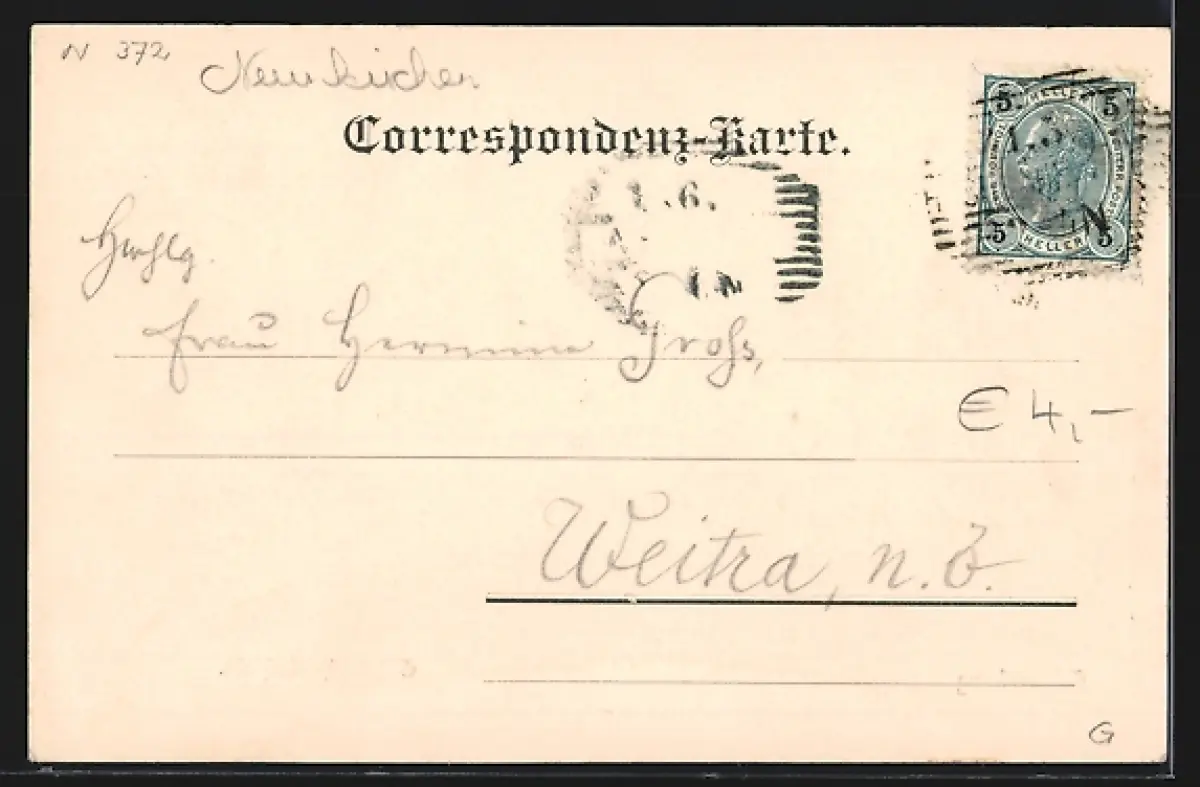 N 372
Neunkirchen
Correspondenz-Karte.
5 HELLER 5
5 HELLER 5
1.6.
Frau Hermine Gross,
€ 4,-
Weitra, n. Ö.
G